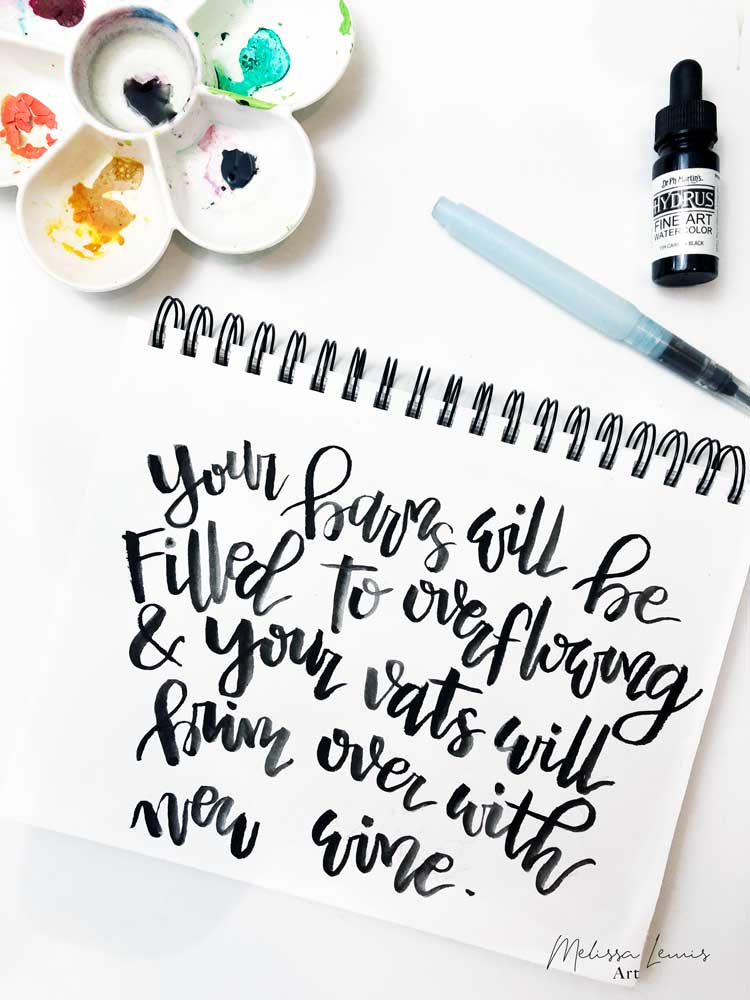 Dr. Ph. Martin's
HYDRUS
FINE ART
WATERCOLOR
BLACK
your barns will be
Filled to overflowing
& your vats will
brim over with
new wine.
Melissa Lewis
Art